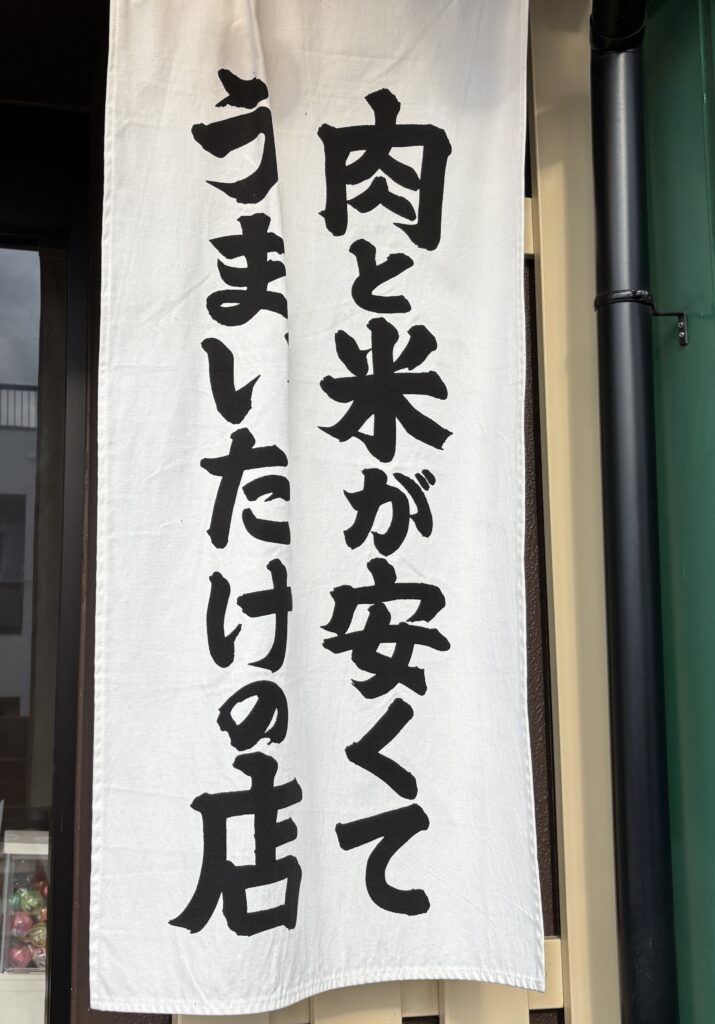 肉と米が安くて
うまいたけの店